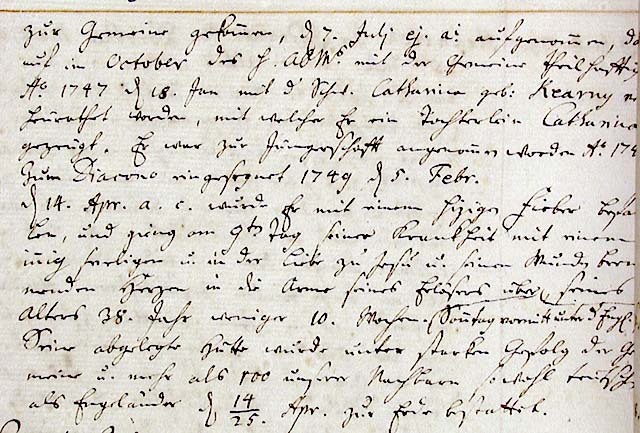 zur Gemeine gekommen, d 7. Julj ej. ai aufgenommen, d
auf im October des H. Abdm. mit der Gemeine theilhafftig
Ao 1747 d 18. Jan mit d Schw. Catharina geb. Kearny
heurathet worden, mit welcher Er ein Töchterlein Catharina
gezeugt. Er war zur Jüngerschafft angenommen worden Ao 174
zum Diacono eingesegnet 1749 d 5. Febr.
d 14. Apr. a. c. wurde Er mit einem hizigen Fieber befal
len, und ging am 9ten Tag seiner Kranckheit mit einem
innig seeligen u. in der Liebe zu Jesu u. seinen Wunden bren
nenden Herzen in die Arme seines Erlösers über, seines
Alters 38. Jahr weniger 10. Wochen. Sonntag vormitt unter
Seine abgelegte Hütte wurde unter starken Gefolg der Ge
meine u. mehr als 100 unsrer Nachbarn sowohl teutsche
als Engeländer d 14/25. Apr. zur Erde bestattet.